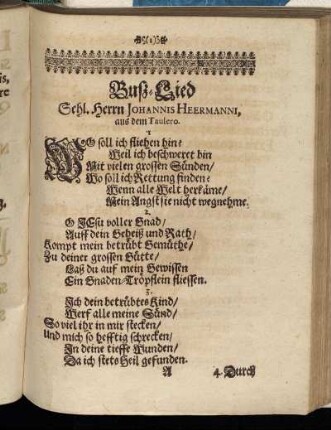 (1)
Buß-Lied
Sehl. Herrn JOHANNIS HEERMANNI,
aus dem Taulero.
1
WO soll ich fliehen hin/
Weil ich beschweret bin
Mit vielen grossen Sünden/
Wo soll ich Rettung finden:
Wenn alle Welt herkäme/
Mein Angst sie nicht wegnehme.
2.
O JEsu voller Gnad/
Auff dein Geheiß und Rath/
Kompt mein betrübt Gemüthe/
Zu deiner grossen Gütte/
Laß du auf mein Gewissen
Ein Gnaden-Tröpflein fliessen.
3.
Ich dein betrübtes Kind/
Werf alle meine Sünd/
So viel ihr in mir stecken/
Und mich so hefftig schrecken/
In deine tieffe Wunden/
Da ich stets Heil gefunden.
A 4. Durch